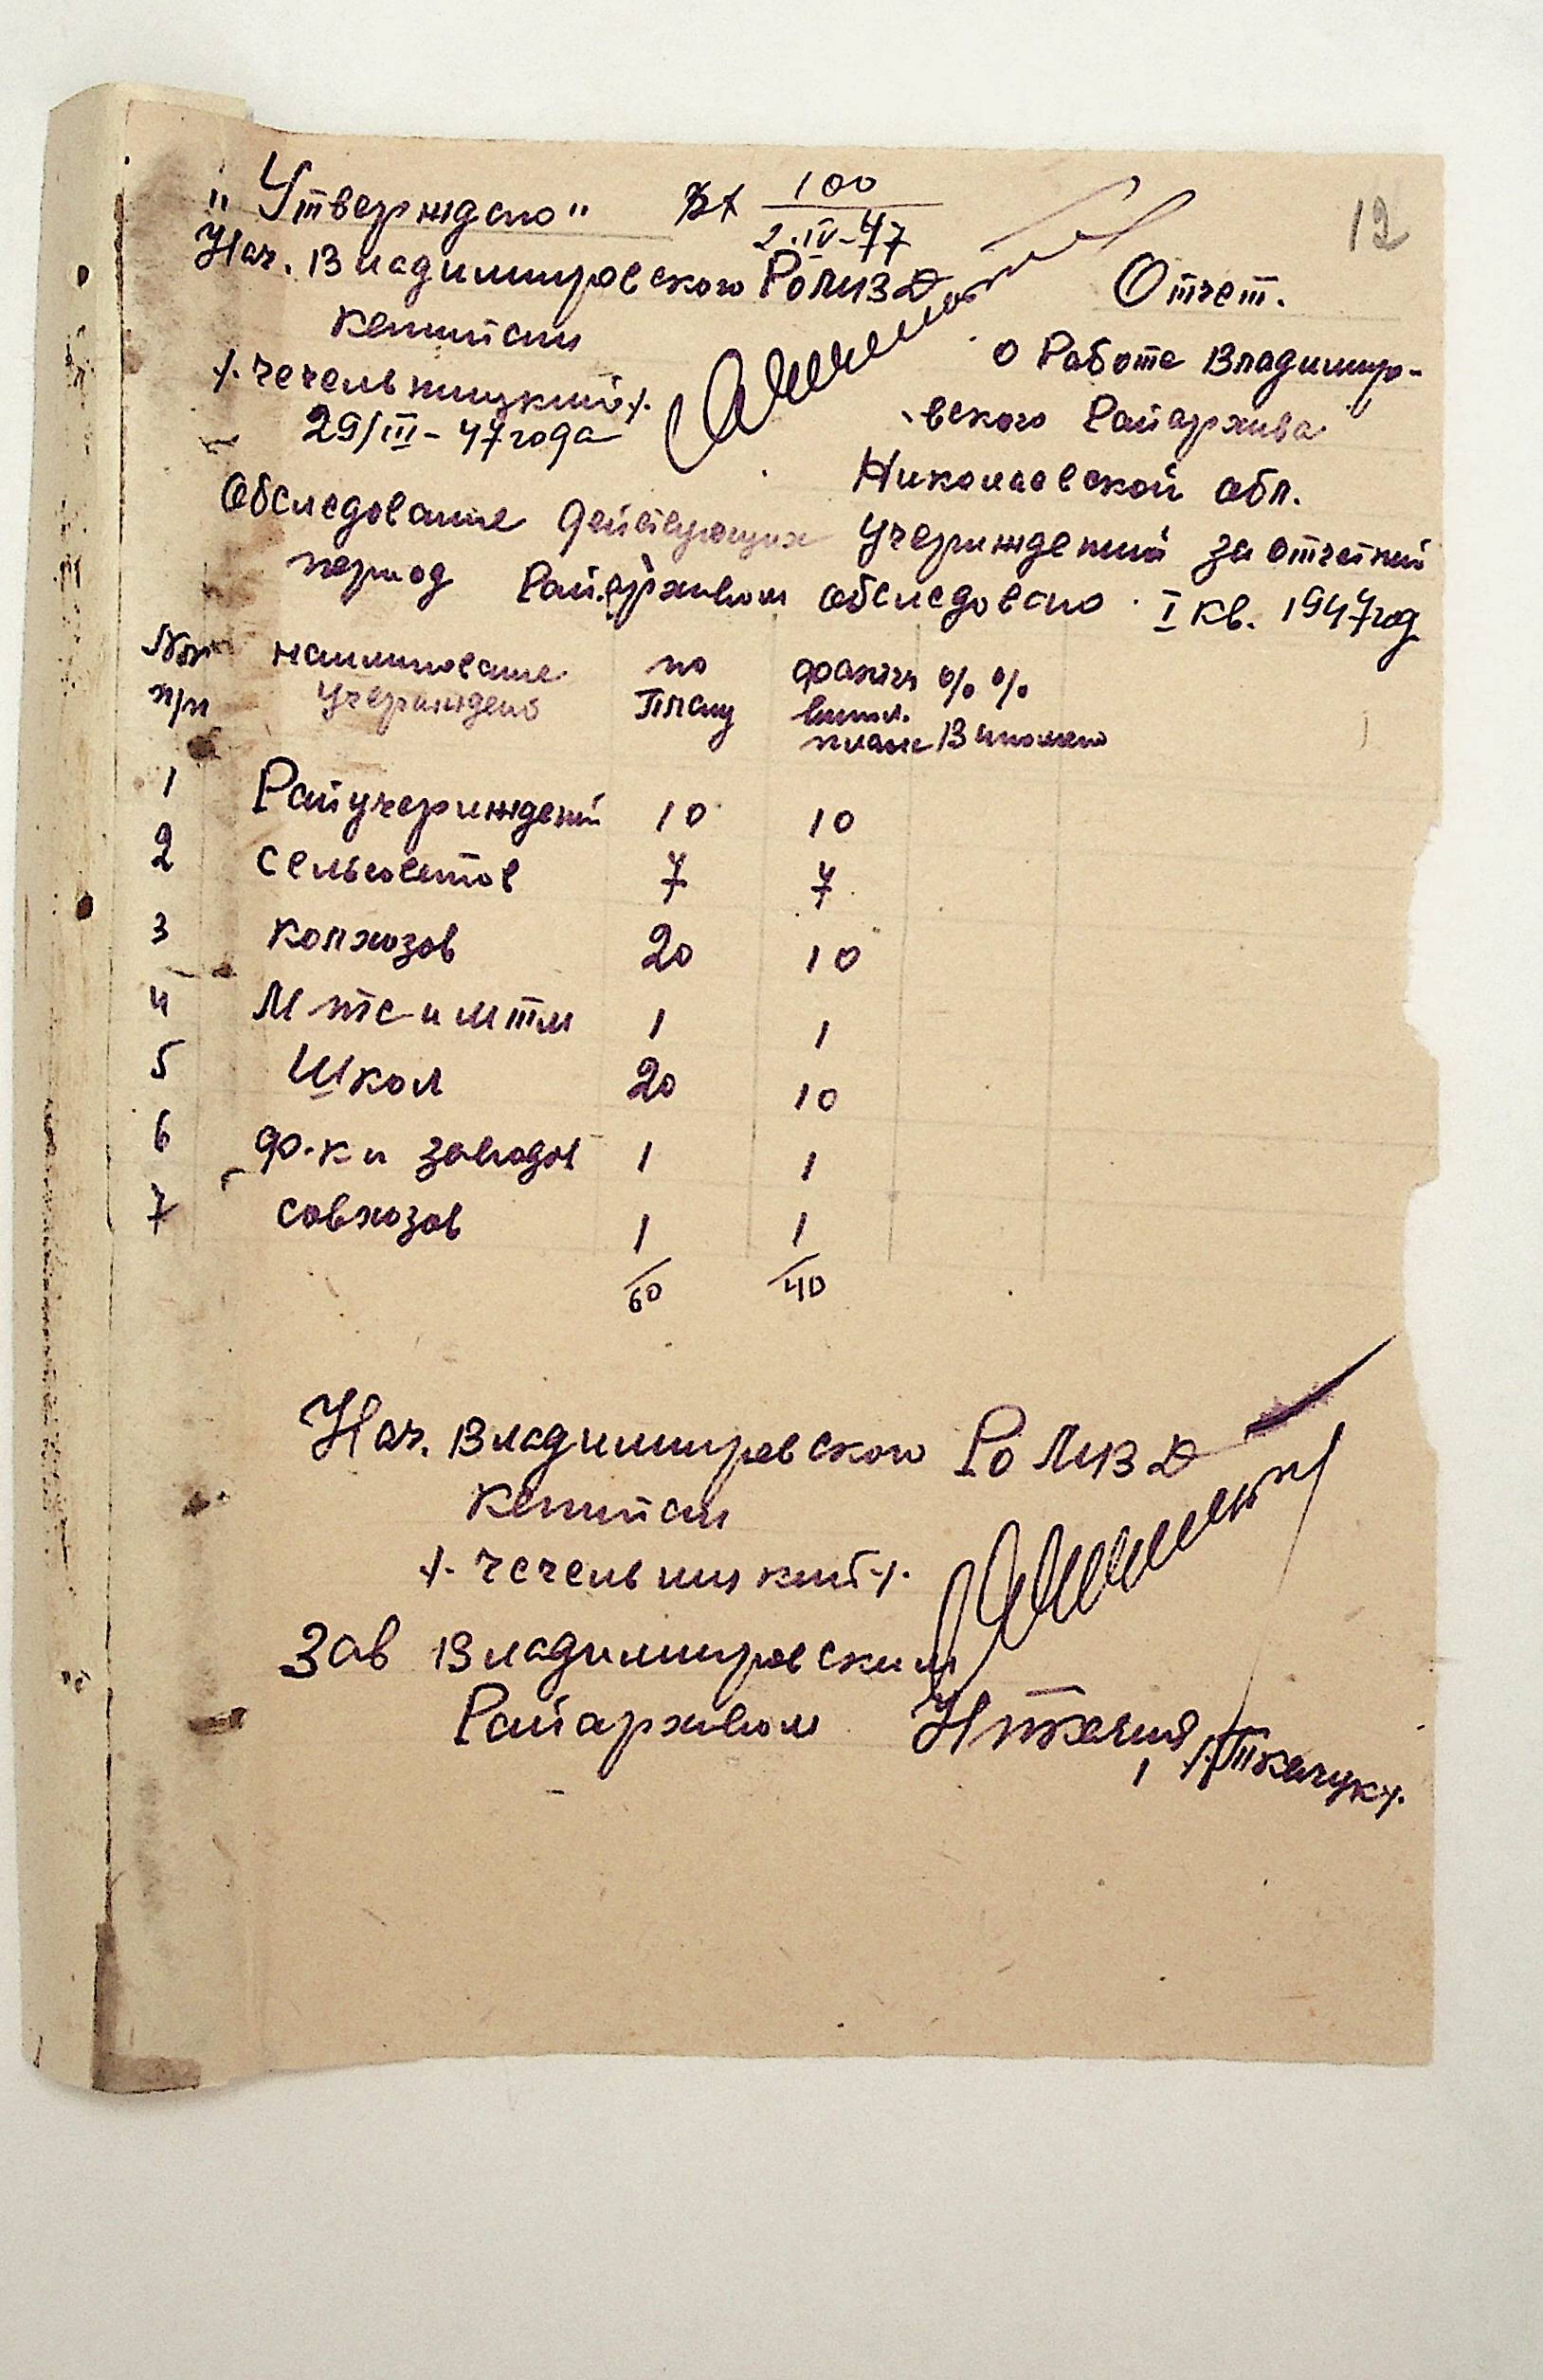 12
"Утверждено"
Вх 100
2.IV-47
Нач. Владимировского РО МВД
Капитан
/Чечельницкий/
29/III-47 года
Отчет.
о Работе Владимиро-
вского Райархива
Николаевской обл.
Обследование действующих учреждений за отчетный
период Райархивом обследовано I кв. 1947 год
№№ наименование по фактич % %
п/п учреждено Плану выпол. плана Выполнено
1 Райучереждений 10 10
2 сельсоветов 7 7
3 колхозов 20 10
4 Мтс и мтм 1 1
5 Школ 20 10
6 ф-к и заводов 1 1
7 совхозов 1 1
60 40
Нач. Владимировского РО МВД
Капитан
/Чечельницкий/
Зав Владимировским
Райархивом
/Ткачук/